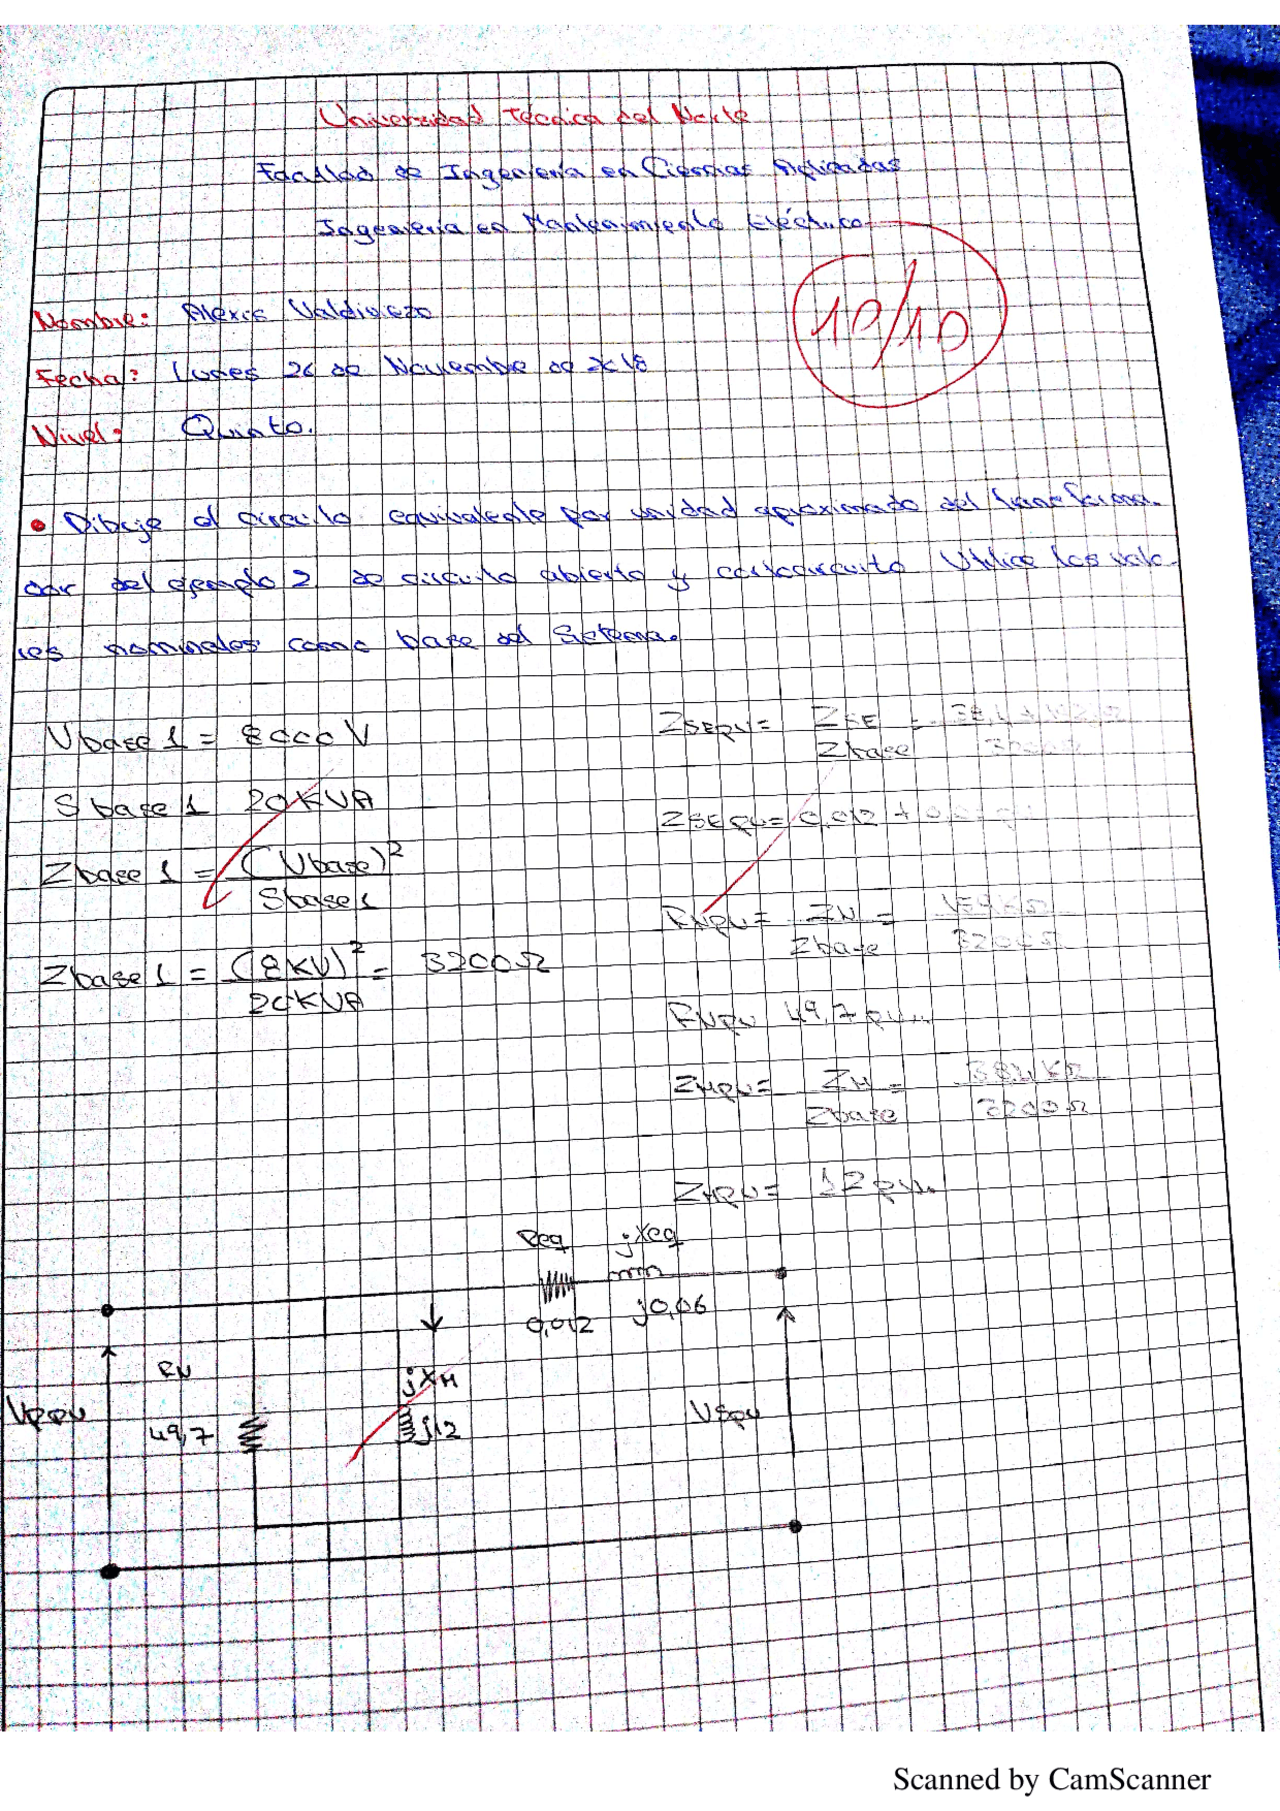 Universidad Técnica del Norte
Facultad de Ingeniería en Ciencias Aplicadas
Ingeniería en Mantenimiento Eléctrico
10/10
Nombre: Alexis Valdiviezo
Fecha: Lunes 26 de Noviembre de 2018
Nivel: Quinto.
• Dibuje el circuito equivalente por unidad aproximado del transforma-
dor del ejemplo 2 de circuito abierto y cortocircuito Utilice los valo-
res nominales como base del Sistema.
Vbase1 = 8000V
Sbase1 20KVA
Zbase1 = (Vbase)² / Sbase1
Zbase1 = (8KV)² / 20KVA = 3200Ω
ZSEpu = ZSE / Zbase =
ZSEpu = 0,012 +
RNpu = ZN / Zbase = 159KΩ / 3200Ω
RNpu 49,7 pu
ZMpu = ZM / Zbase = 38,4KΩ / 3200Ω
ZMpu = 12 pu
Req jXeq
0,012 j0,06
RN
jXM
VPpu
49,7
j12
VSpu
Scanned by CamScanner